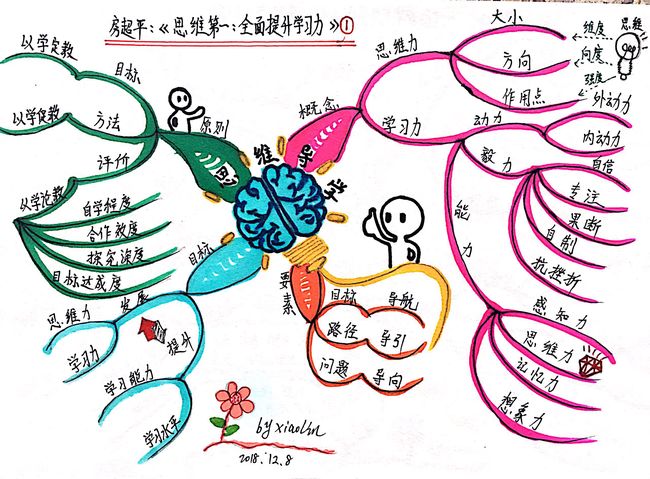 房超平：《思维第一：全面提升学习力》①
思维导学
概念
思维力
大小
维度
思维
方向
向度
作用点
强度
学习力
动力
外动力
内动力
毅力
自信
专注
果断
自制
抗挫折
能力
感知力
思维力
记忆力
想象力
要素
目标
导航
路径
导引
问题
导向
目标
发展
思维力
学习力
提升
学习能力
学习水平
原则
目标
以学定教
方法
以学促教
评价
以学论教
自学程度
合作效度
探究深度
目标达成度
by xiaolin
2018.12.8